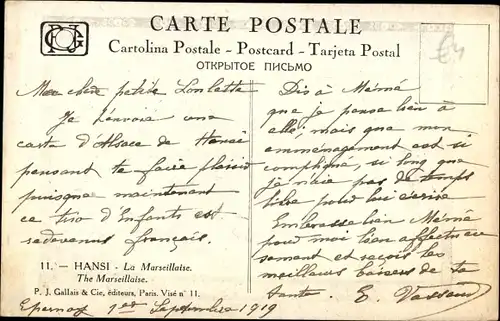 CARTE POSTALE
Cartolina Postale - Postcard - Tarjeta Postal
ОТКРЫТОЕ ПИСЬМО
Ma chère petite Loulette
Je t'envoie une
carte d'Alsace de Hansi
pensant te faire plaisir
puisque maintenant
ce d'Enfants est
redevenus français.
11. — HANSI - La Marseillaise.
The Marseillaise.
P. J. Gallais & Cie, éditeurs, Paris. Visé n° 11.
Epernay 1er Septembre 1919
Dis à Mémé
que je pense bien à
elle; mais que mon
emménagement est si
compliqué, si long que
je n'aie pas de temps
libre pour lui écrire
Embrasse bien Mémé
pour moi bien affectueu
sement et reçois les
meilleurs baisers de ta
tante. E.